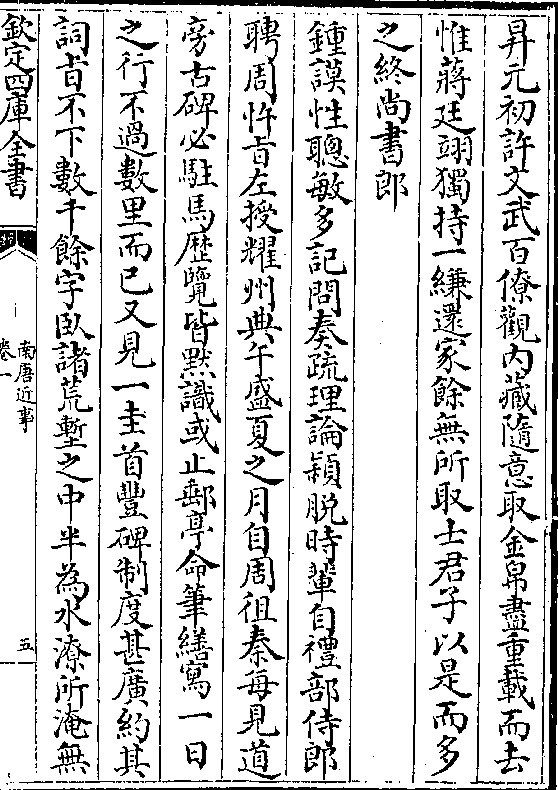 昇元初許文武百僚觀内藏隨意取金帛盡重載而去
惟蔣廷翊獨持一縑還家餘無所取士君子以是而多
之終尚書郎
鍾謨性聰敏多記問奏疏理論頴脱時輩自禮部侍郎
聘周忤㫖左授耀州典午盛夏之月自周徂秦每見道
旁古碑必駐馬歴覽皆黙識或止郵亭命筆繕寫一日
之行不過數里而已又見一圭首豐碑制度甚廣約其
詞㫖不下數千餘字臥諸荒塹之中半為水潦所淹無
欽定四庫全書
南唐近事
卷一
五